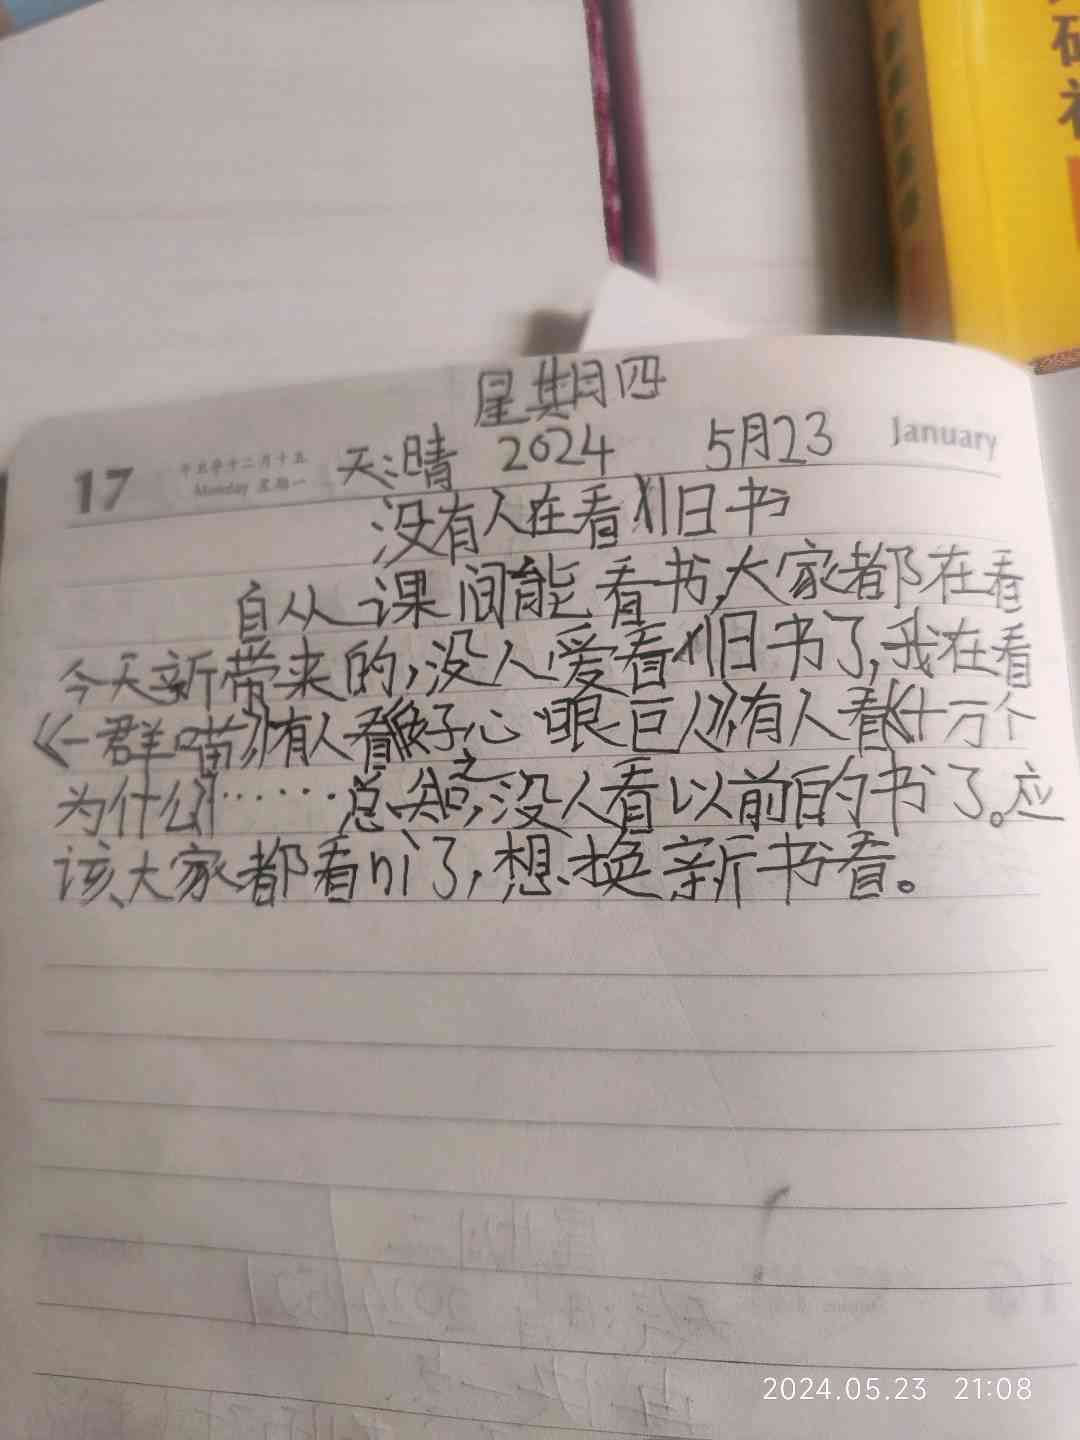 星期四
17 Monday 星期一 天:晴 2024 5月23 January
没有人在看旧书
自从课间能看书,大家都在看
今天新带来的,没人爱看旧书了,我在看
《一群喵》,有人看《好心眼巨人》,有人看《十万个
为什么》……总之知,没人看以前的书了。应
该大家都看nì了,想换新书看。
2024.05.23 21:08